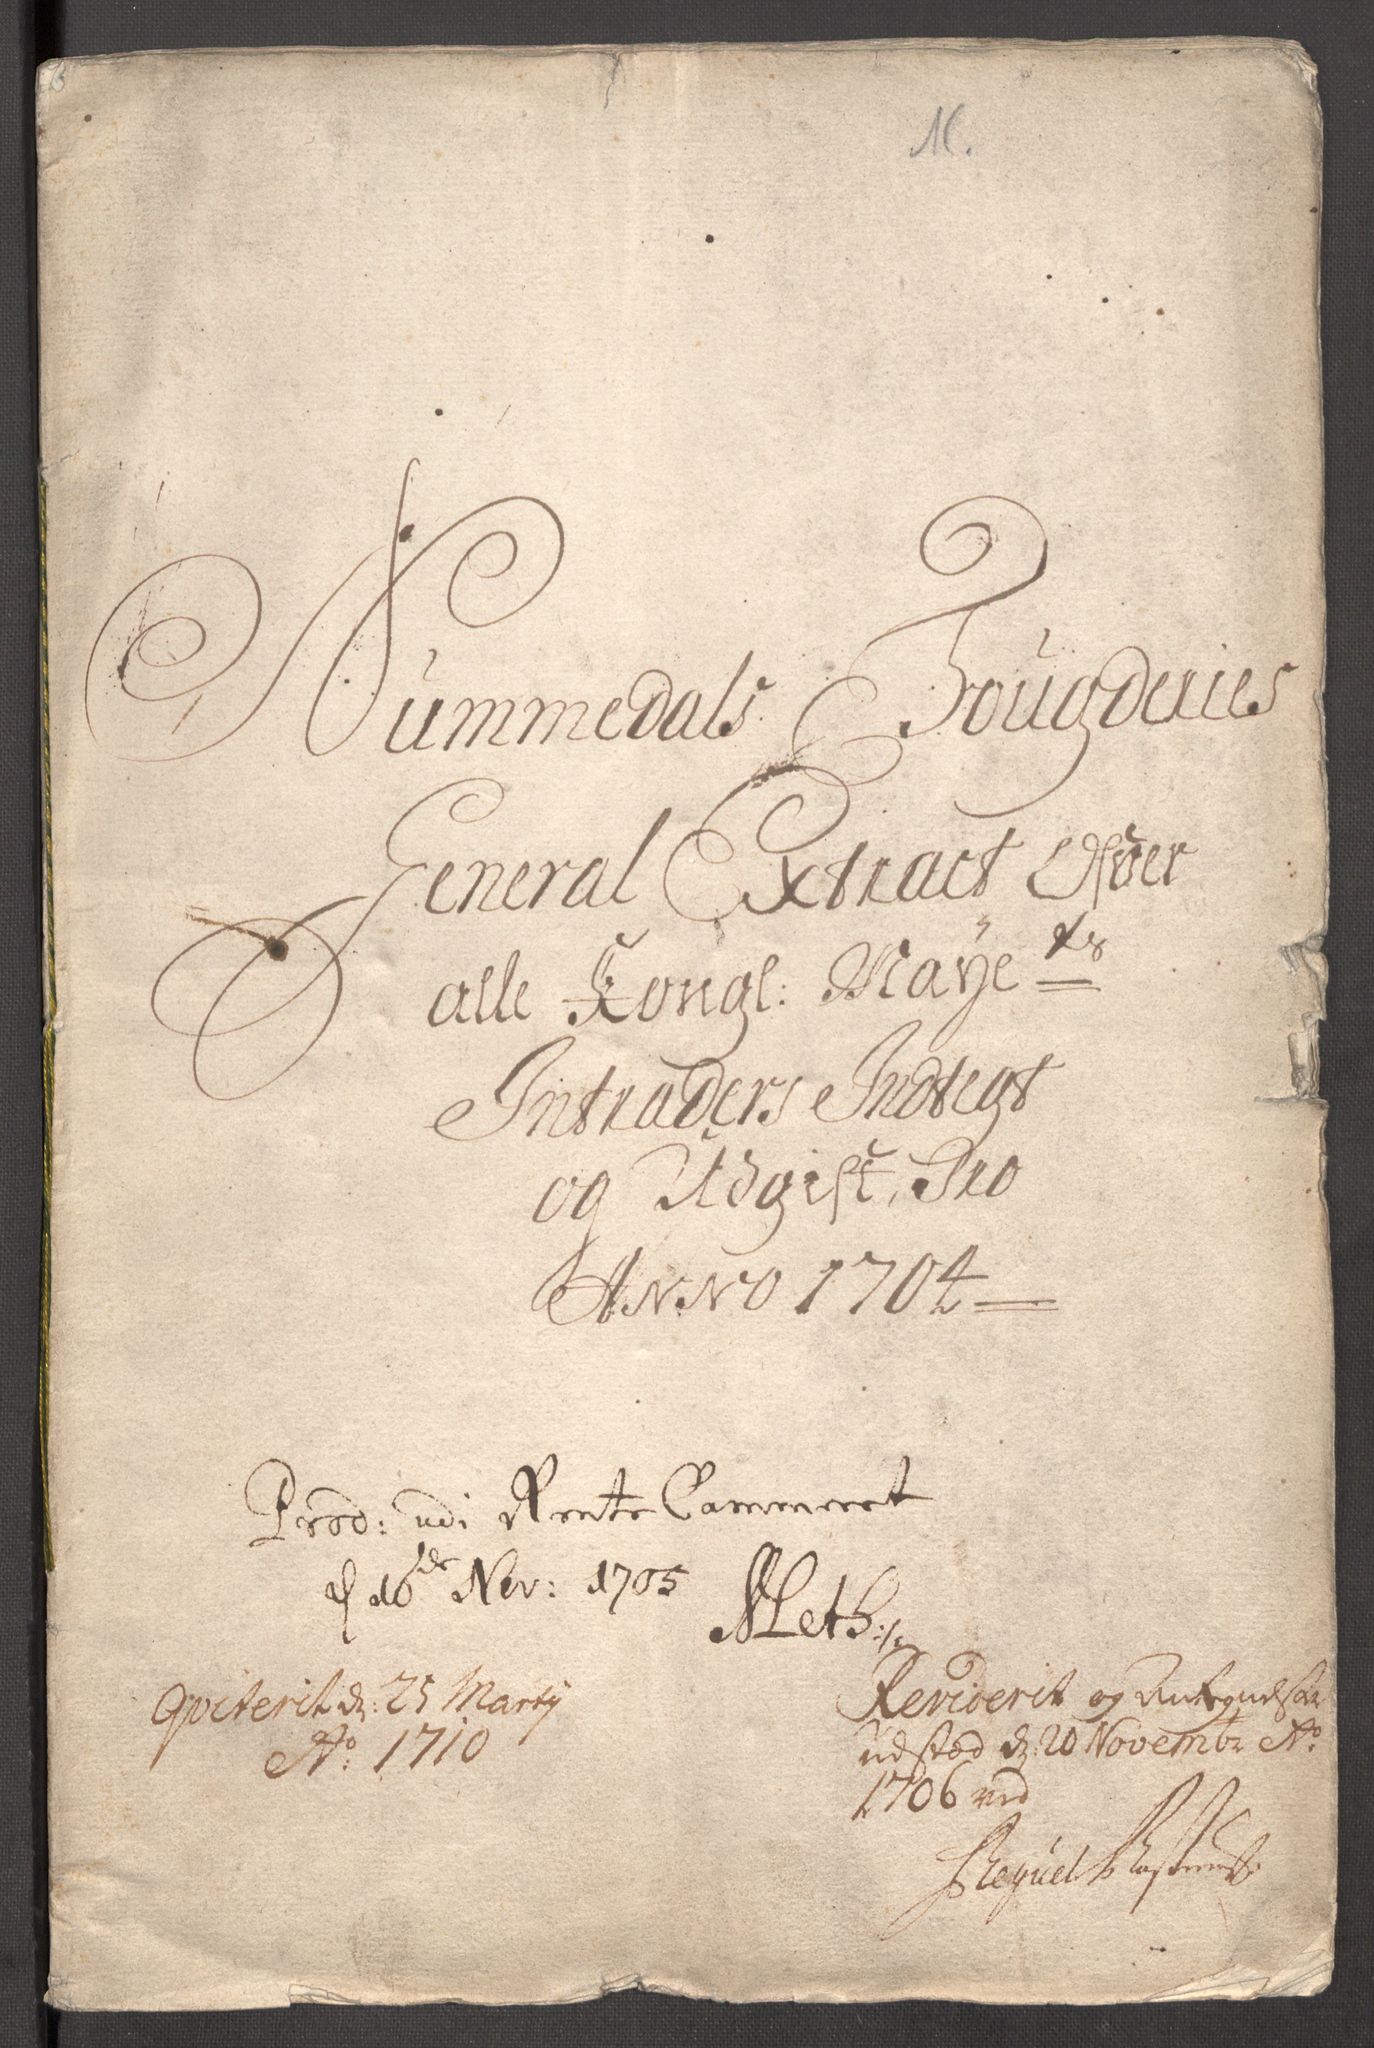 Nummedals Fougderies
General Extract Ofver
alle Kongl: Maye ts
Intraders Indtegt
og Udgift, Pro
Anno 1704
Prod: udi Rente Cammeret
d 16de Nov: 1705
Meth:
Qviterit d: 25 Martij
Ao: 1710
Reviderit og Antegnelser
udstæd d: 20 Novembr Ao:
1706 ved